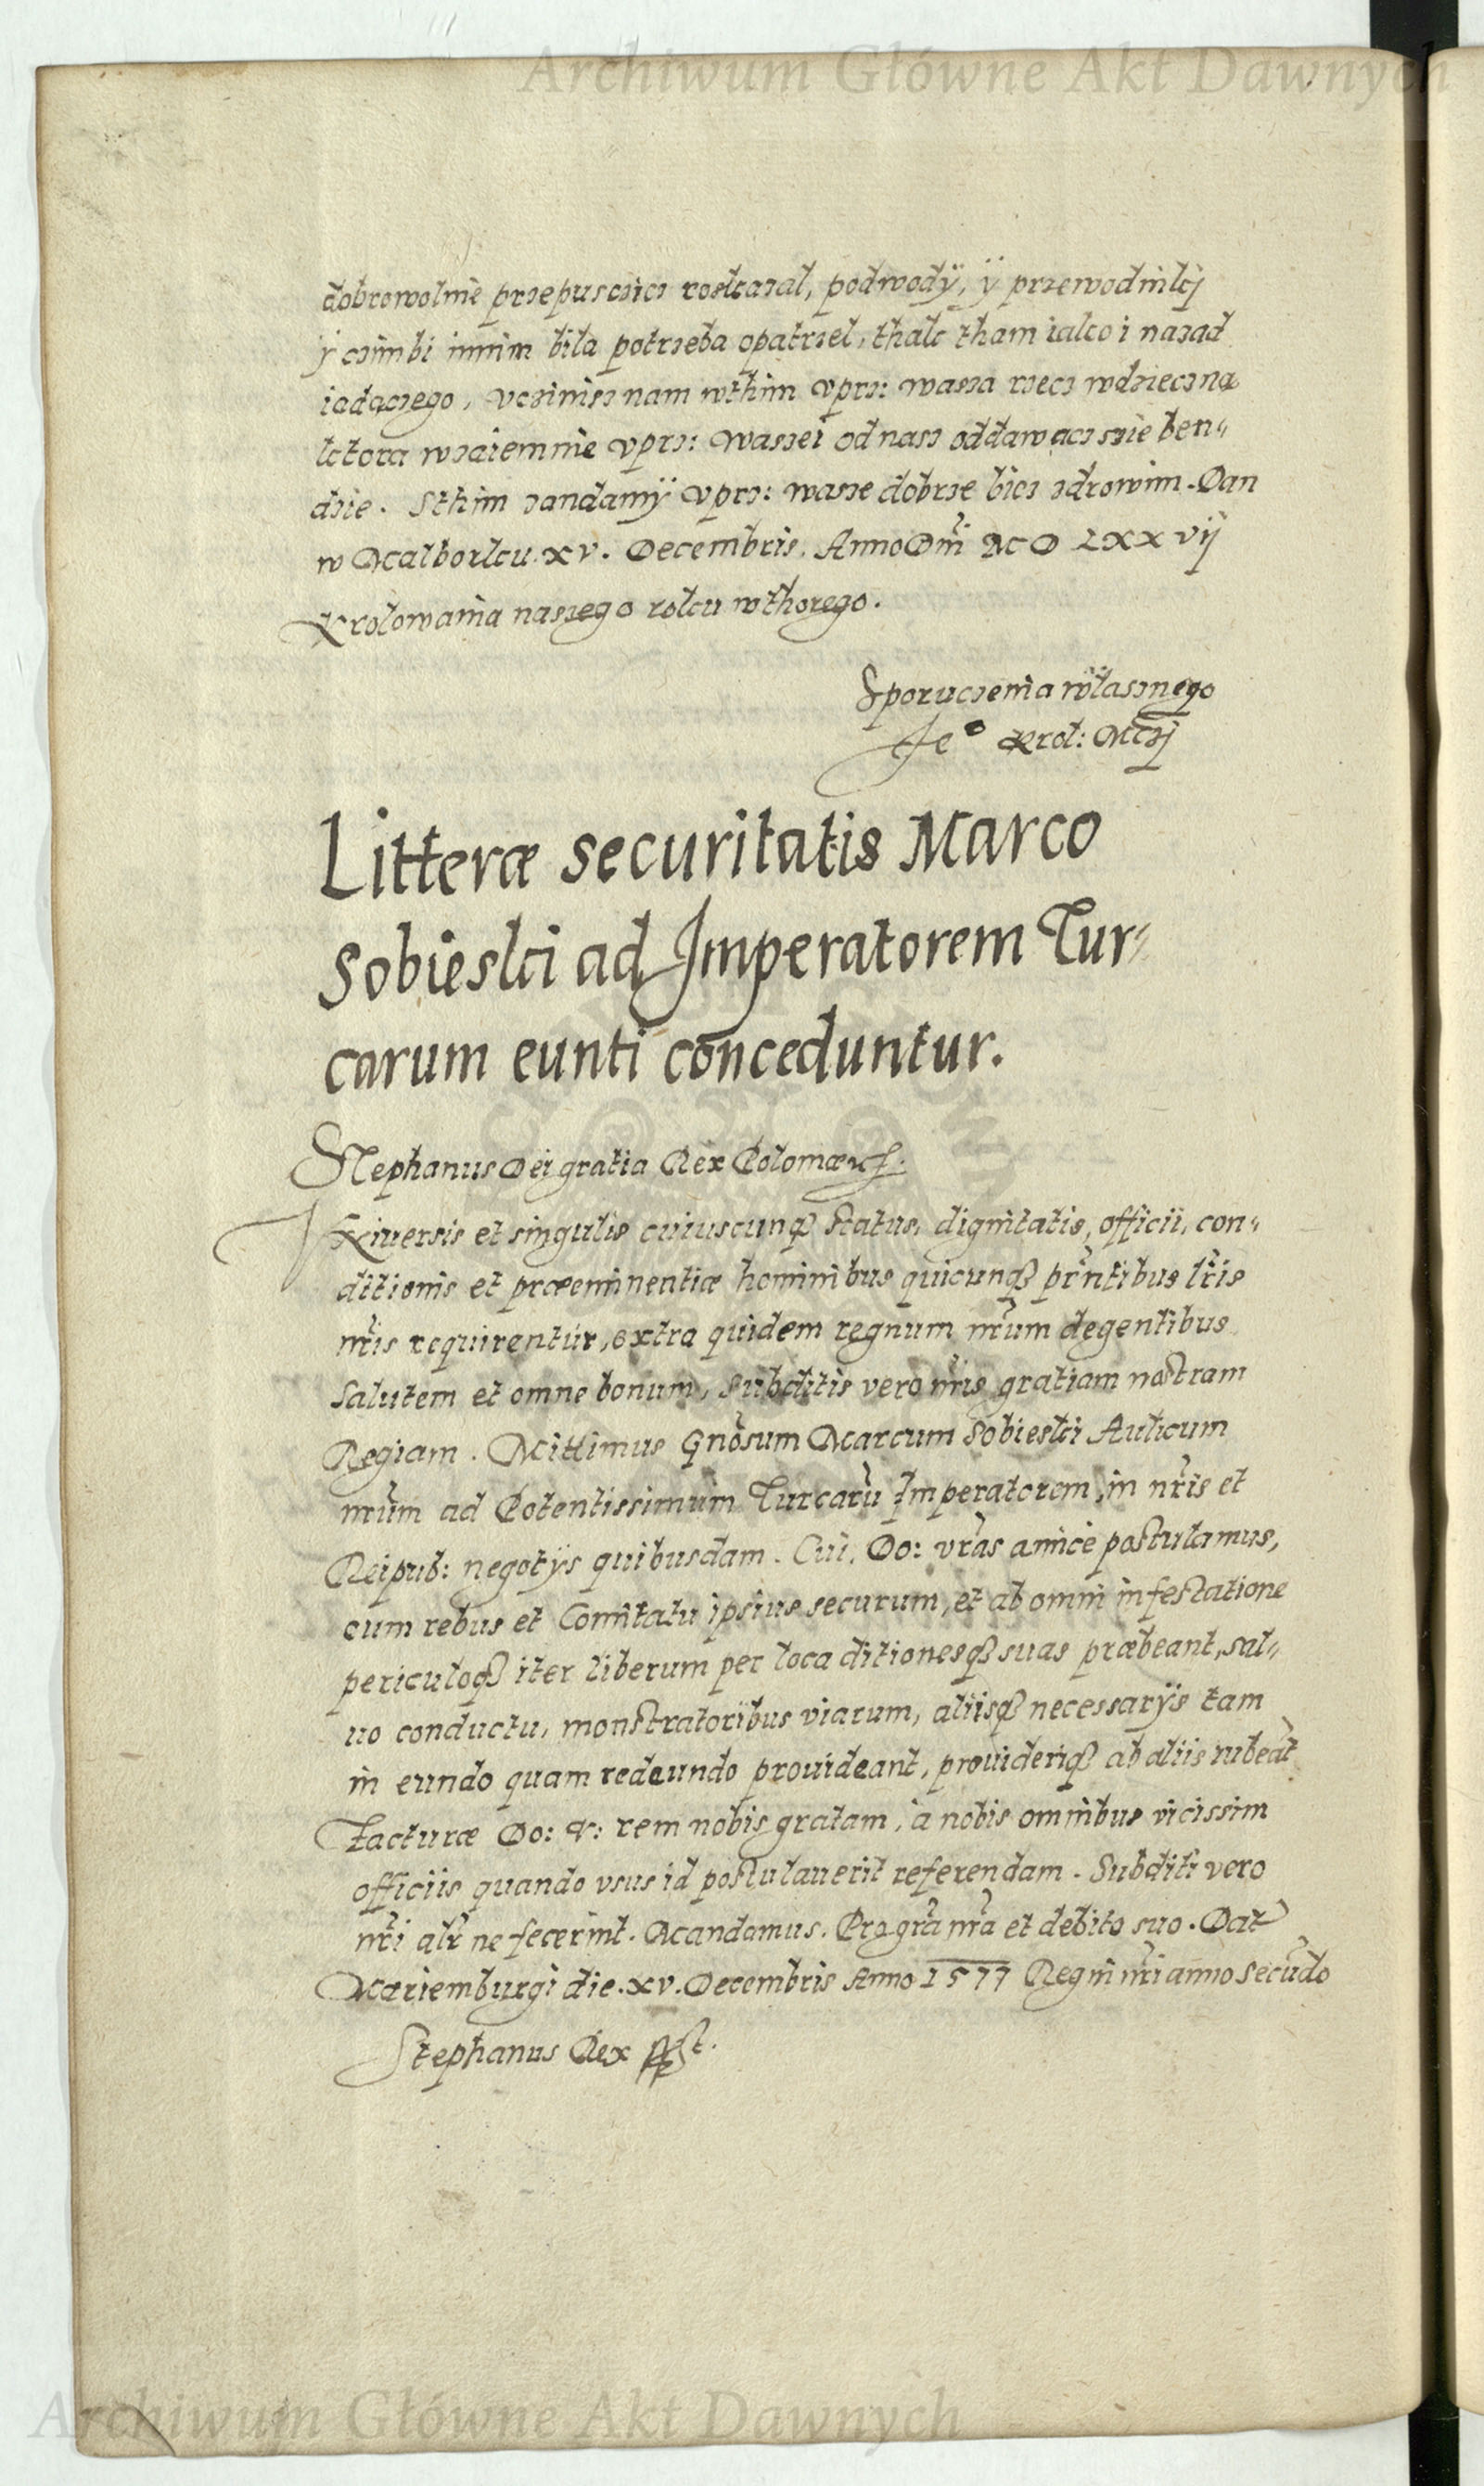 Archiwum Główne Akt Dawnych
dobrowolnie przepusczicz roskazal, podwody, y przewodniki
y czimbi innim bila potrzeba opatrzel, thak tham iako i nazad
iadączego, vczinisz nam wthim vprz: wasza rzecz wdzieczną
ktora wzaiemnie vprz: waszei od nasz oddawacz szie ben„
dzie. Sthim zandamÿ vprz: wasze dobrze bicz zdrowim. Dan
w Malborku. xv. Decembris. Anno Dni MD LXXvij
Krolowania naszego roku wthorego.
Sporuczenia własznego
Je° Krol: Mczi
Litteræ securitatis Marco
Sobieski ad Imperatorem Tur„
carum eunti conceduntur.
Stephanus Dei gratia Rex Poloniæ etc.
Vniuersis et singulis cuiuscunq status, dignitatis, officii, con„
ditionis et præeminentiæ hominibus quicunq pñtibus lris
nris requirentur, extra quidem regnum nrum degentibus
salutem et omne bonum, Subditis vero nris gratiam nostram
Regiam. Mittimus Gnosum Marcum Sobieski Aulicum
nrum ad Potentissimum Turcarũ Imperatorem, in nris et
Reipub: negotÿs quibusdam. Cui, Do: vras amice postulamus,
cum rebus et Comitatu ipsius securum, et ab omni infestatione
periculoq iter liberum per loca ditionesq suas præbeant, sal„
uo conductu, monstratoribus viarum, aliisq necessarÿs tam
in eundo quam redeundo prouideant, prouideriq ab aliis iubeãt
facturæ Do: V: rem nobis gratam, a nobis omnibus vicissim
officiis quando vsus id postulauerit referendam. Subditi vero
nri alr ne fecerint. Mandamus. Pro gra nra et debito suo. Dat
Mariemburgi die. xv. Decembris Anno 1577 Regni nri anno secũdo
Stephanus Rex sst.
Archiwum Główne Akt Dawnych